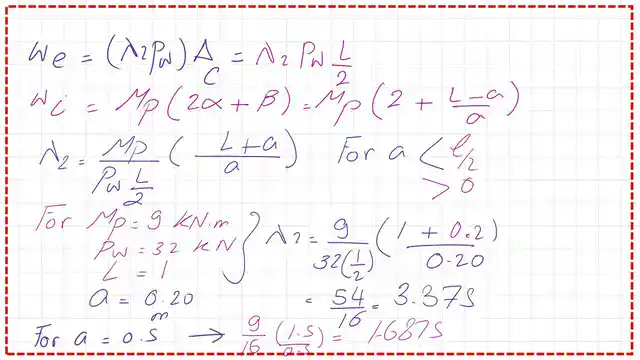 We = (λ2 Pw) Δc = λ2 Pw L/2
Wi = Mp (2α + β) = Mp (2 + (L-a)/a)
λ2 = Mp/(Pw L/2) ((L+a)/a) For a < l/2
> 0
For Mp = 9 KN.m
Pw = 32 KN
L = 1
a = 0.20 m
} λ2 = 9/(32(1/2)) ((1 + 0.2)/0.20)
= 54/16 = 3.375
For a = 0.5 → 9/16 (1.5/0.5) = 1.6875